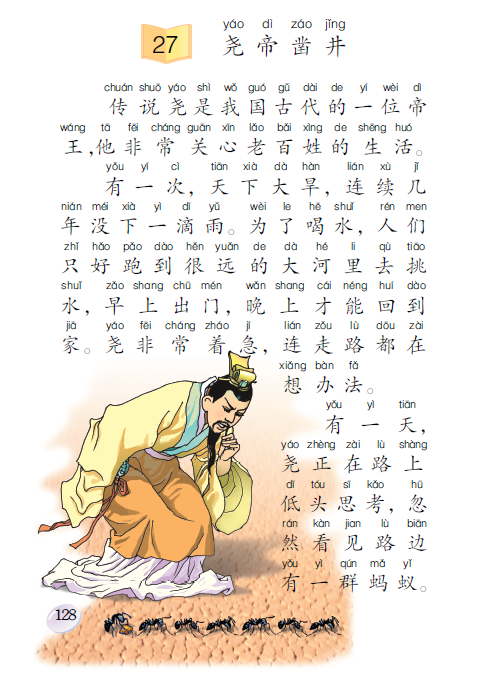 yáo dì záo jǐng
27 尧帝凿井
chuán shuō yáo shì wǒ guó gǔ dài de yí wèi dì
传说尧是我国古代的一位帝
wáng tā fēi cháng guān xīn lǎo bǎi xìng de shēng huó
王,他非常关心老百姓的生活。
yǒu yí cì tiān xià dà hàn lián xù jǐ
有一次,天下大旱,连续几
nián méi xià yì dī yǔ wèi le hē shuǐ rén men
年没下一滴雨。为了喝水,人们
zhǐ hǎo pǎo dào hěn yuǎn de dà hé li qù tiāo
只好跑到很远的大河里去挑
shuǐ zǎo shang chū mén wǎn shang cái néng huí dào
水,早上出门,晚上才能回到
jiā yáo fēi cháng zháo jí lián zǒu lù dōu zài
家。尧非常着急,连走路都在
xiǎng bàn fǎ
想办法。
yǒu yì tiān
有一天,
yáo zhèng zài lù shàng
尧正在路上
dī tóu sī kǎo hū
低头思考,忽
rán kàn jian lù biān
然看见路边
yǒu yì qún mǎ yǐ
有一群蚂蚁。
128